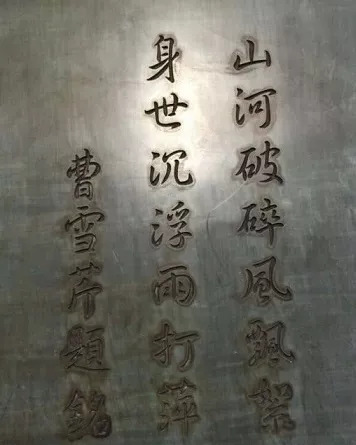 山河破碎風飄絮
身世沉浮雨打萍
曹雪芹題銘